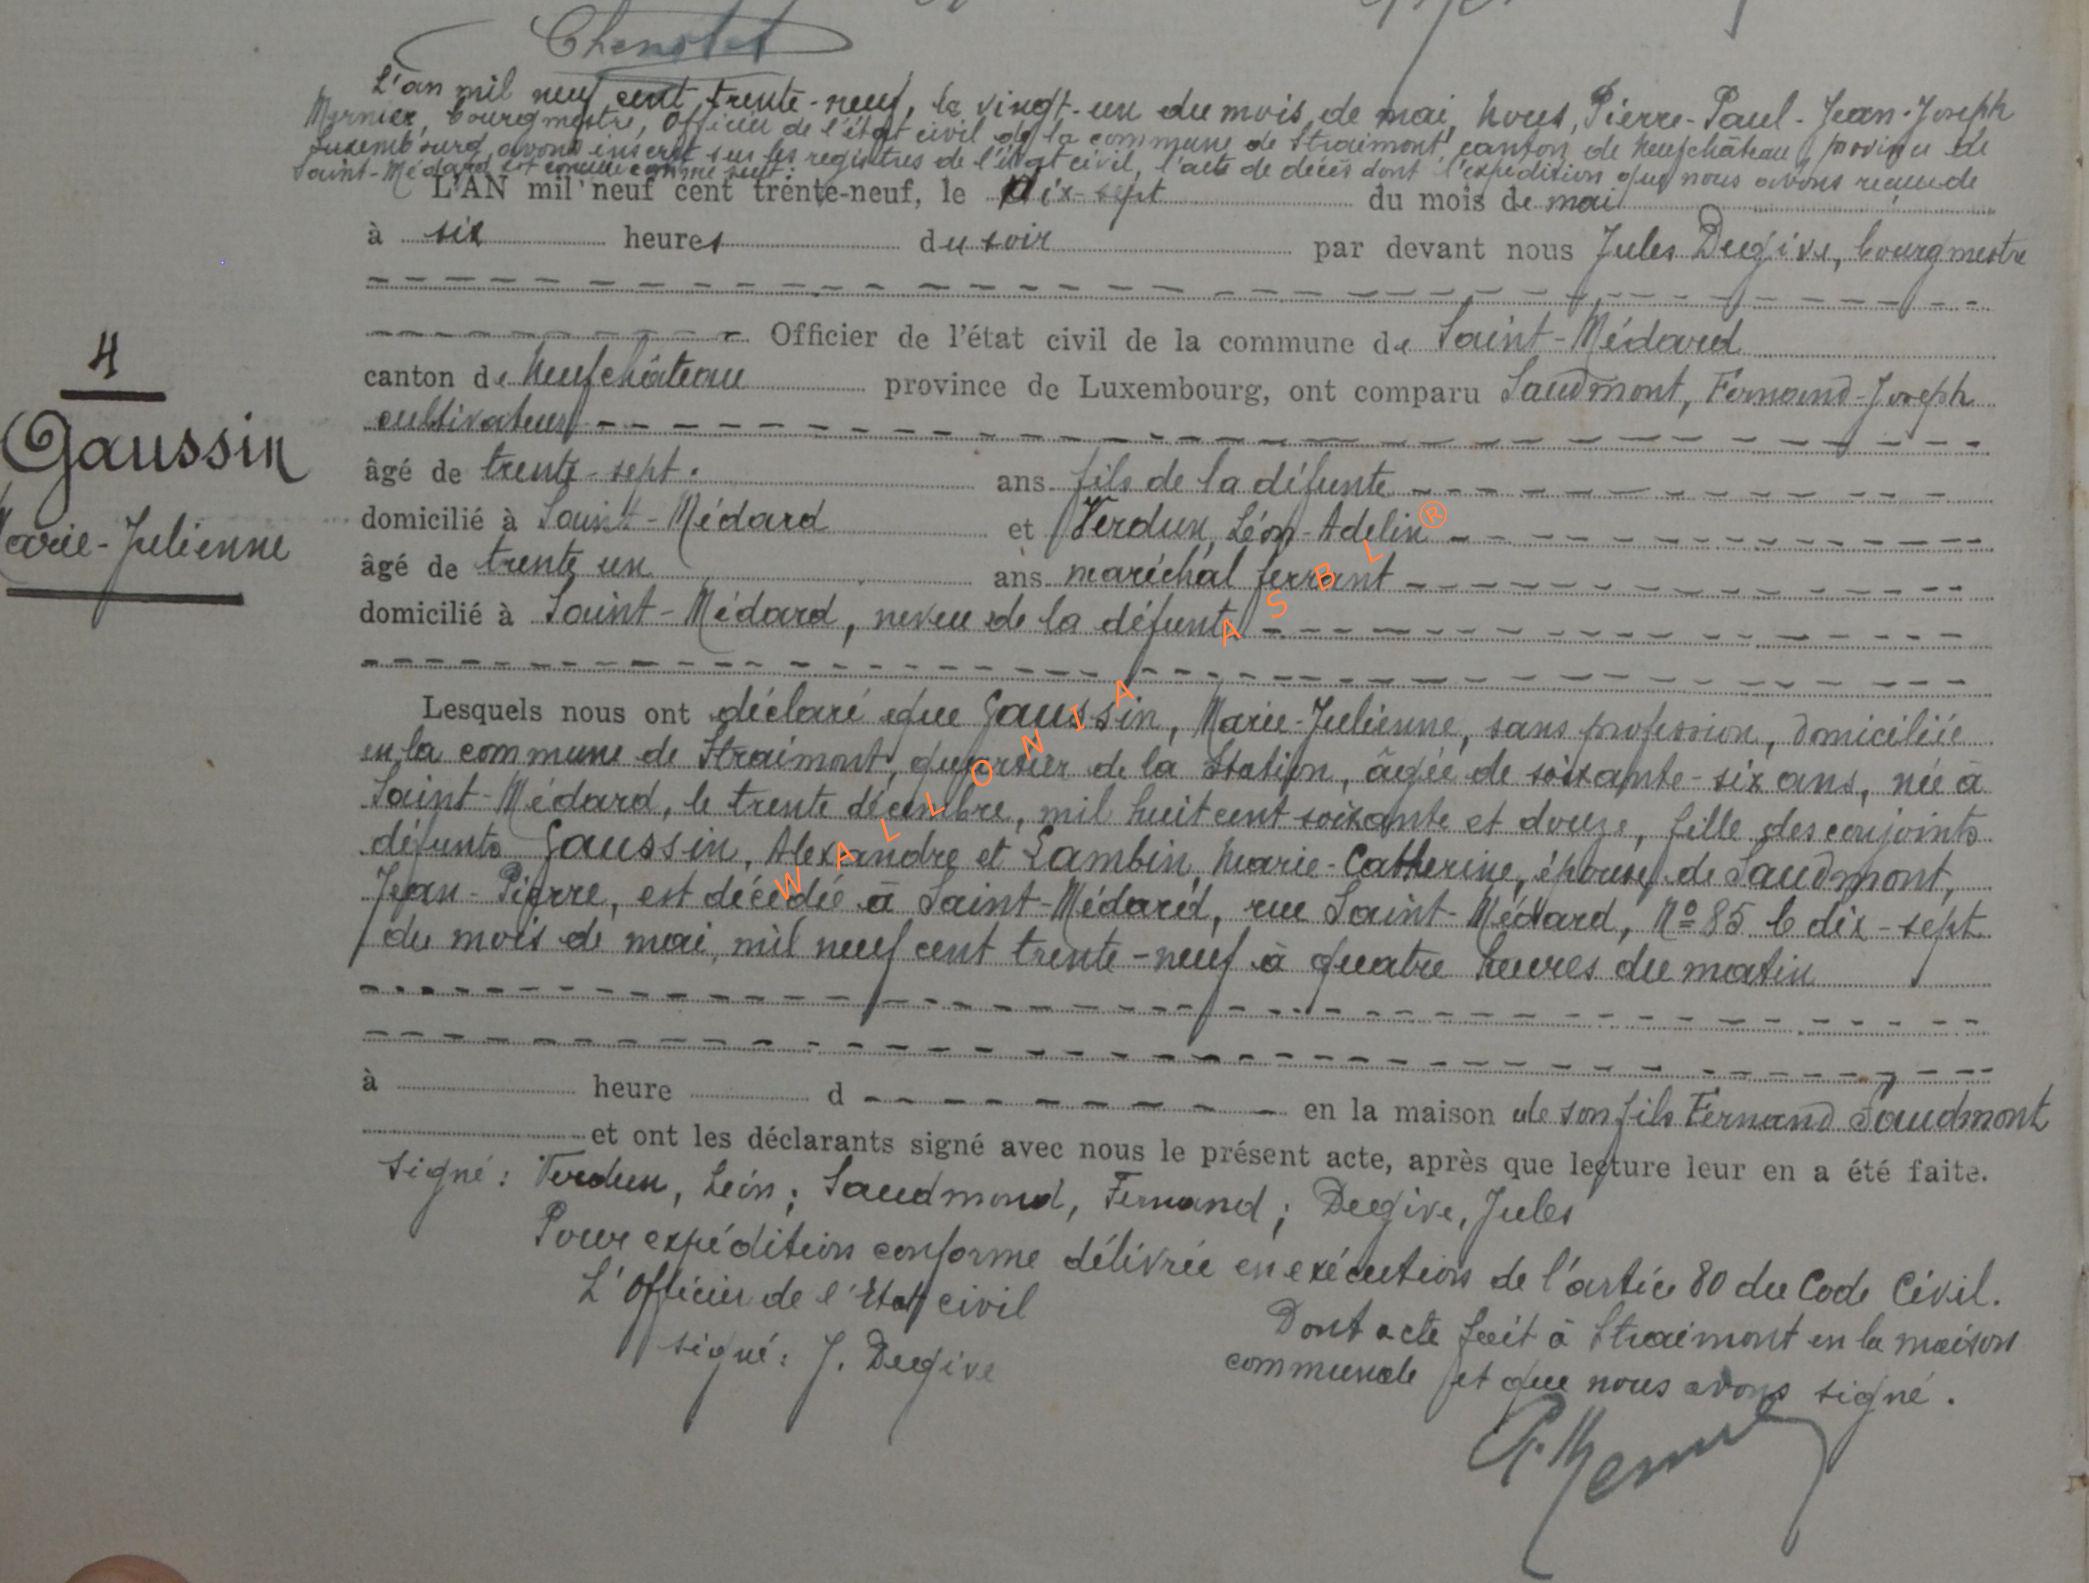 Chenotet
L'an mil neuf cent trente-neuf, le vingt-un du mois de mai, nous, Pierre-Paul-Jean-Joseph
bourgmestre, Officier de l'état civil de la commune de Straimont, canton de Neufchâteau, province de
Luxembourg, avons inscrit sur les registres de l'état civil, l'acte de décès dont l'expédition que nous avons reçue de
Saint-Médard est conçue comme suit:
L'AN mil neuf cent trente-neuf, le dix-sept du mois de mai
à six heures du soir par devant nous Jules Dugive, bourgmestre
Officier de l'état civil de la commune de Saint-Médard
4
canton de Neufchâteau province de Luxembourg, ont comparu Saudmont, Fernand-Joseph
cultivateur
Gaussin
âgé de trente-sept ans fils de la défunte
domicilié à Saint-Médard et Verdun, Léon-Adelin
Marie-Julienne
âgé de trente un ans maréchal ferrant
domicilié à Saint-Médard, neveu de la défunte
Lesquels nous ont déclaré que Gaussin, Marie-Julienne, sans profession, domiciliée
en la commune de Straimont, quartier de la Station, âgée de soixante-six ans, née à
Saint-Médard, le trente décembre, mil huit cent soixante et douze, fille des conjoints
défunts Gaussin, Alexandre et Lambin, Marie-Catherine, épouse de Saudmont,
Jean-Pierre, est décédée à Saint-Médard, rue Saint-Médard, Nº 85 le dix-sept
du mois de mai, mil neuf cent trente-neuf à quatre heures du matin
à heure d en la maison de son fils Fernand Saudmont
et ont les déclarants signé avec nous le présent acte, après que lecture leur en a été faite.
Signé: Verdun, Léon; Saudmond, Fernand; Dugive, Jules
Pour expédition conforme délivrée en exécution de l'artice 80 du Code Civil.
L'Officier de l'Etat civil
signé: J. Dugive
Dont acte fait à Straimont en la maison
communale et que nous avons signé.
WALLONIA ASBL®